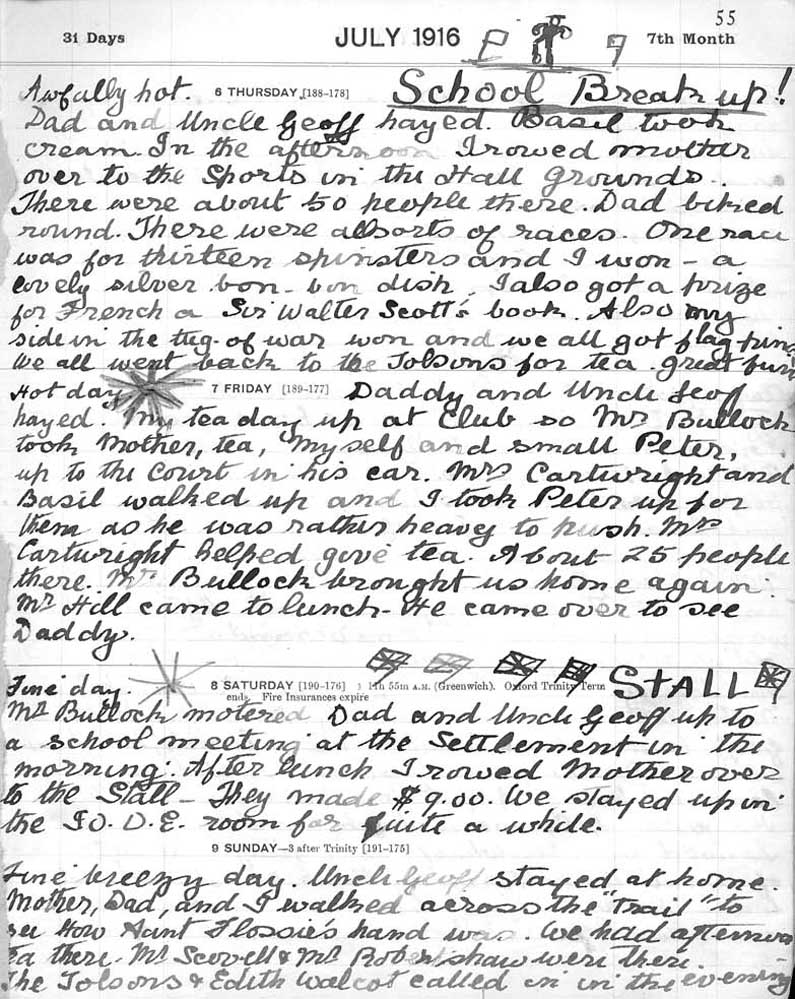 55
31 Days JULY 1916 7th Month
Awfully hot. 6 THURSDAY [188-178] School Break up!
Dad and Uncle Geoff hayed. Basil took
cream. In the afternoon I rowed mother
over to the Sports in the Hall grounds.
There were about 50 people there. Dad biked
round. There were allsorts of races. One race
was for thirteen spinsters and I won - a
lovely silver bon-bon dish. I also got a prize
for French a Sir Walter Scott's book. Also my
side in the tug-of war won and we all got flag pins
We all went back to the Tolsons for tea. great fun
Hot day 7 FRIDAY [189-177] Daddy and Uncle Geoff
hayed. My tea day up at Club so Mr Bullock
took Mother, tea, myself and small Peter,
up to the Court in his car. Mrs Cartwright and
Basil walked up and I took Peter up for
them as he was rather heavy to push. Mrs
Cartwright helped give tea. About 25 people
there. Mr Bullock brought us home again.
Mr Hill came to lunch - He came over to see
Daddy.
Fine day. 8 SATURDAY [190-176] 11h 55m A.M. (Greenwich). Oxford Trinity Term STALL
ends. Fire Insurances expire
Mr Bullock motered Dad and Uncle Geoff up to
a school meeting at the Settlement in the
morning. After lunch I rowed Mother over
to the Stall - They made $9.00. We stayed up in
the I.O.D.E. room for quite a while.
9 SUNDAY—3 after Trinity [191-175]
Fine breezy day. Uncle Geoff stayed at home.
Mother, Dad, and I walked across the "trail" to
see How Aunt Flossie's hand was. We had afternoon
tea there. Mr Scovell & Mr Robershaw were there.
The Tolsons & Edith Walcot called in in the evening